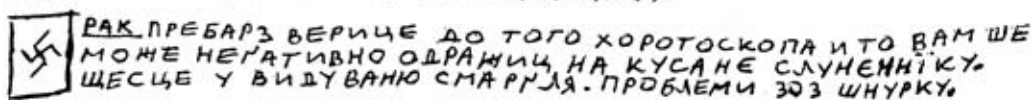 РАК ПРЕБАРЗ ВЕРИЦЕ ДО ТОГО ХОРОТОСКОПА И ТО ВАМ ШЕ
МОЖЕ НЕҐАТИВНО ОДРАЖИЦ НА КУСАНЄ СЛУНЄЧНЇКУ.
ЩЕСЦЕ У ВИДУВАНЮ СМАРҐЛЯ. ПРОБЛЕМИ ЗОЗ ШНУРКУ.